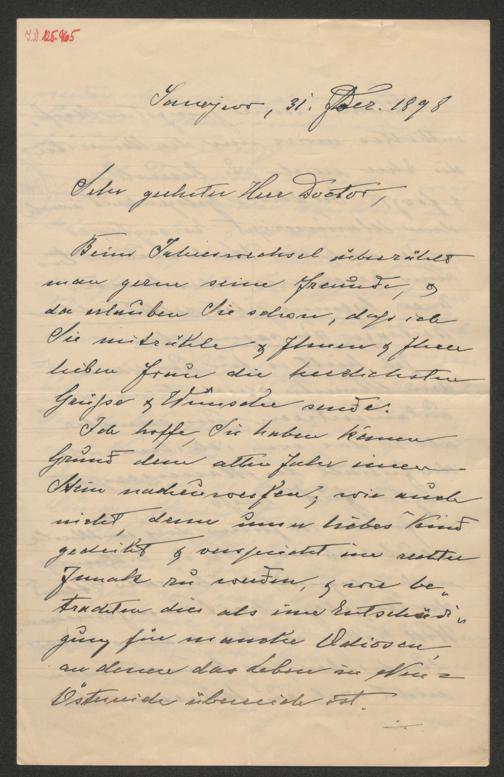 I.N. 125.965
Sarajevo, 31. Dez. 1898
Sehr geehrter Herr Doctor,
Beim Jahreswechsel überzählt
man gerne seine Freunde, &
da erlauben Sie schon, daß ich
Sie mitzähle & Ihnen & Ihrer
lieben Frau die herzlichsten
Grüße & Wünsche sende.
Ich hoffe, Sie haben keinen
Grund dem alten Jahr einen
Stein nachzuwerfen, wie auch
nicht, denn unser liebes Kind
gedeiht & verspricht ein
zu werden, & wir be-
trachten dies als eine Entschädi-
gung für manche
an denen das Leben in Neu-
Österreich überreich ist.